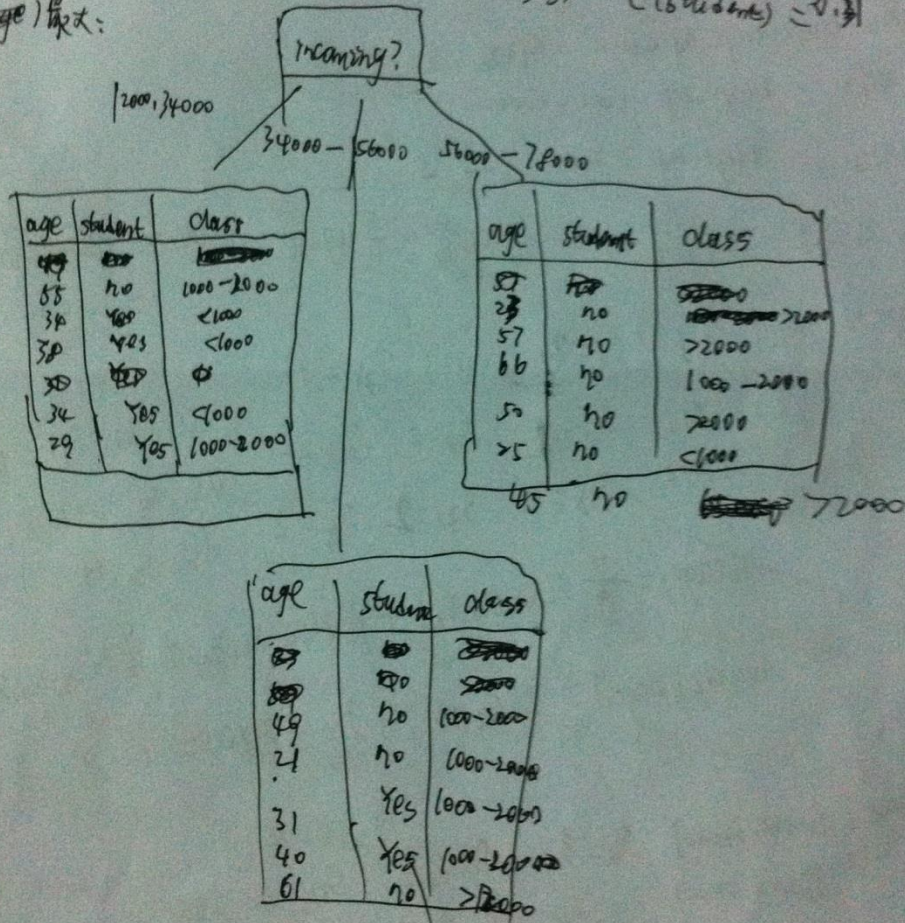 最大:
incoming?
12000,34000
34000-56000
56000-78000
age student class
55 no 1000-2000
34 Yes <1000
38 Yes <1000
34 Yes <1000
29 Yes 1000-2000
age student class
23 no >2000
57 no >2000
66 no 1000-2000
50 no >2000
25 no <1000
45 no >2000
age student class
49 no 1000-2000
21 no 1000-2000
31 Yes 1000-2000
40 Yes 1000-2000
61 no